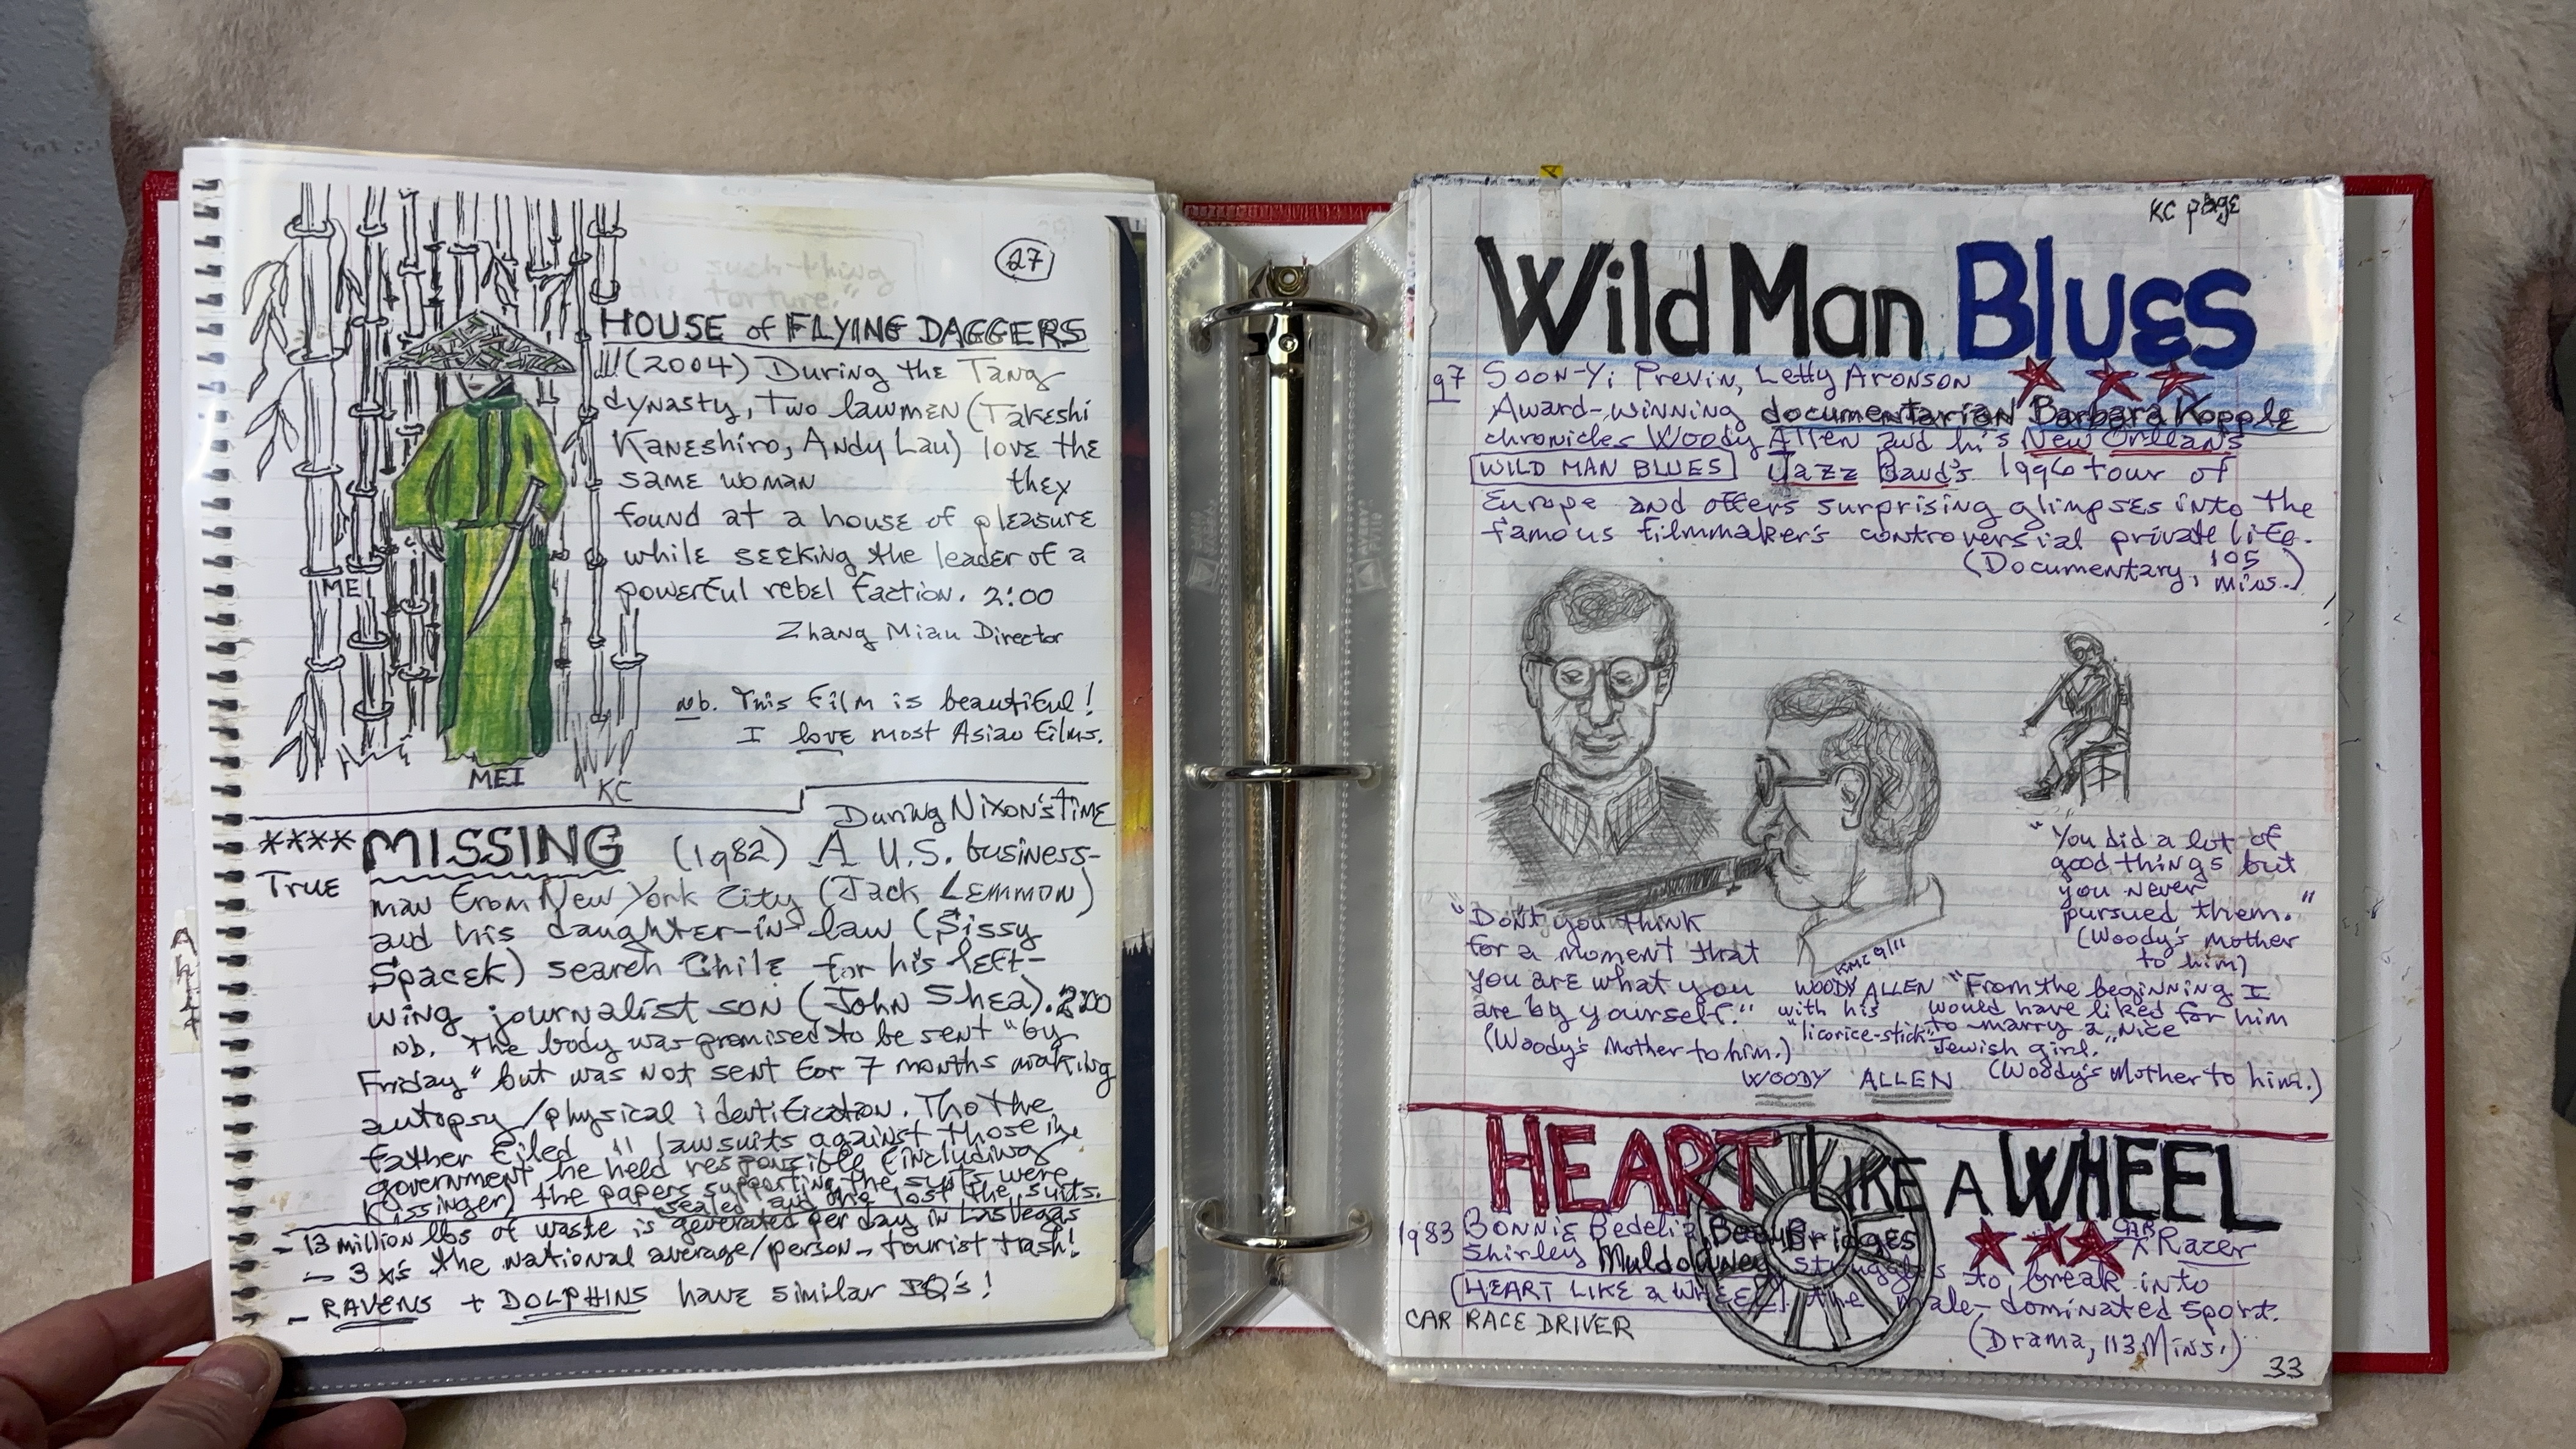 27
HOUSE of FLYING DAGGERS
(2004) During the Tang
dynasty, Two lawmen (Takeshi
Kaneshiro, Andy Lau) love the
same woman they
found at a house of pleasure
while seeking the leader of a
powerful rebel faction. 2:00
Zhang Miau Director
nb. This film is beautiful!
I love most Asian films.
MEI
MEI
KC
During Nixon's time
**** MISSING (1982) A U.S. business-
True
man from New York City (Jack Lemmon)
and his daughter-in-law (Sissy
Spacek) search Chile for his left-
wing journalist son (John Shea). 2:00
nb. The body was promised to be sent "by
Friday" but was not sent for 7 months making
autopsy/physical identification. Tho the
father filed 11 lawsuits against those in
government he held responsible (including
Kissinger) the papers supporting the suits were
sealed and he lost the suits.
- 13 million lbs of waste is generated per day in Las Vegas
- 3 x's the national average/person - tourist trash!
- RAVENS + DOLPHINS have similar IQ's!
KC page
Wild Man Blues
97 Soon-Yi Previn, Letty Aronson
Award-winning documentarian Barbara Kopple
chronicles Woody Allen and his New Orleans
WILD MAN BLUES Jazz Band's 1996 tour of
Europe and offers surprising glimpses into the
famous filmmaker's controversial private life.
(Documentary, 105
mins.)
"You did a lot of
good things but
you never
pursued them."
(Woody's mother
to him)
"Don't you think
for a moment that
you are what you
are by yourself."
(Woody's Mother to him.)
KMC 9/11
WOODY ALLEN
with his
"licorice-stick"
"From the beginning I
would have liked for him
to marry a nice
Jewish girl."
(Woody's Mother to him.)
WOODY ALLEN
HEART LIKE A WHEEL
1983 Bonnie Bedelia, Beau Bridges
CAR Racer
Shirley Muldowney struggles to break into
HEART LIKE a WHEEL the male-dominated sport.
CAR RACE DRIVER
(Drama, 113 Mins.)
33